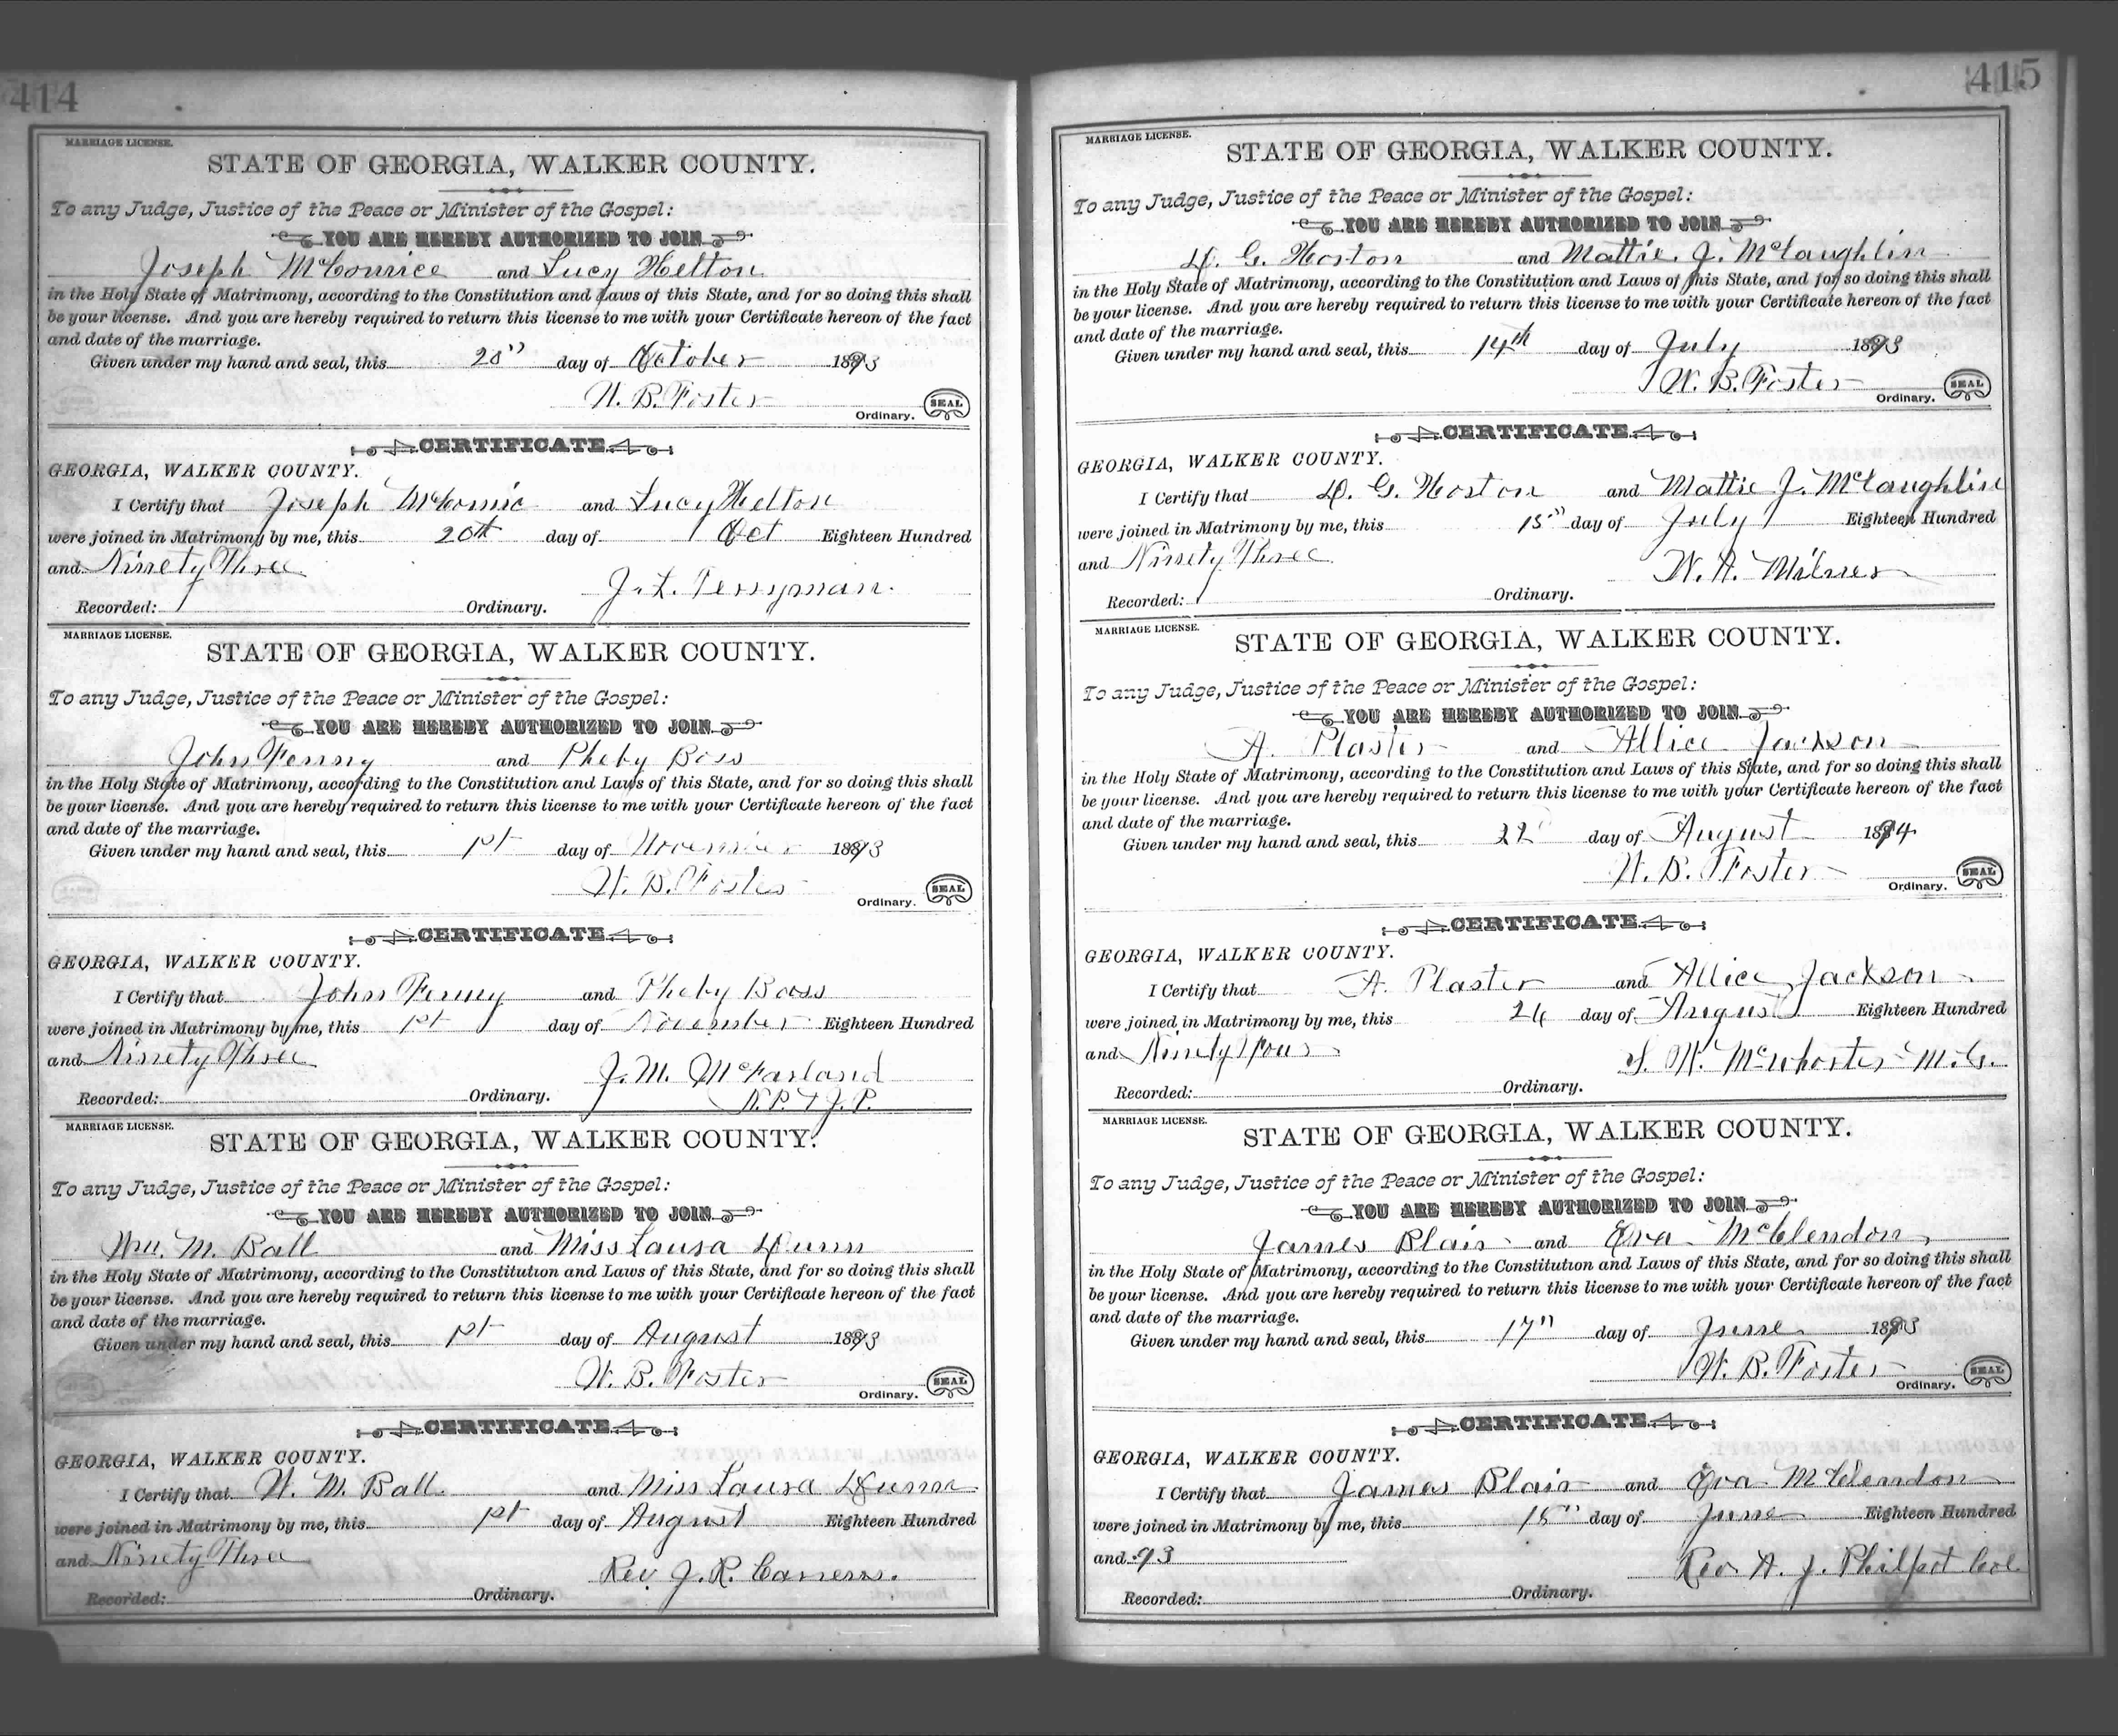 414
MARRIAGE LICENSE.
STATE OF GEORGIA, WALKER COUNTY.
To any Judge, Justice of the Peace or Minister of the Gospel:
YOU ARE HEREBY AUTHORIZED TO JOIN
Joseph and Lucy Helton
in the Holy State of Matrimony, according to the Constitution and Laws of this State, and for so doing this shall
be your license. And you are hereby required to return this license to me with your Certificate hereon of the fact
and date of the marriage.
Given under my hand and seal, this 20" day of October 1893
W. B. Foster
Ordinary. SEAL
CERTIFICATE
GEORGIA, WALKER COUNTY.
I Certify that Joseph McComic and Lucy Helton
were joined in Matrimony by me, this 20th day of Oct Eighteen Hundred
and Ninety Three
J. L. Perryman.
Recorded: Ordinary.
MARRIAGE LICENSE.
STATE OF GEORGIA, WALKER COUNTY.
To any Judge, Justice of the Peace or Minister of the Gospel:
YOU ARE HEREBY AUTHORIZED TO JOIN
John and Pheby Boss
in the Holy State of Matrimony, according to the Constitution and Laws of this State, and for so doing this shall
be your license. And you are hereby required to return this license to me with your Certificate hereon of the fact
and date of the marriage.
Given under my hand and seal, this 1st day of November 1893
W. B. Foster
Ordinary. SEAL
CERTIFICATE
GEORGIA, WALKER COUNTY.
I Certify that John and Pheby Booss
were joined in Matrimony by me, this 1st day of November Eighteen Hundred
and Ninety Three
J. M. McFarland
Recorded: Ordinary. N. P. & J. P.
MARRIAGE LICENSE.
STATE OF GEORGIA, WALKER COUNTY.
To any Judge, Justice of the Peace or Minister of the Gospel:
YOU ARE HEREBY AUTHORIZED TO JOIN
Wm. M. Ball and Miss Laura Dunn
in the Holy State of Matrimony, according to the Constitution and Laws of this State, and for so doing this shall
be your license. And you are hereby required to return this license to me with your Certificate hereon of the fact
and date of the marriage.
Given under my hand and seal, this 1st day of August 1893
W. B. Foster
Ordinary. SEAL
CERTIFICATE
GEORGIA, WALKER COUNTY.
I Certify that W. M. Ball. and Miss Laura Dunn
were joined in Matrimony by me, this 1st day of August Eighteen Hundred
and Ninety Three
Rev. J. R.
Recorded: Ordinary.
415
MARRIAGE LICENSE.
STATE OF GEORGIA, WALKER COUNTY.
To any Judge, Justice of the Peace or Minister of the Gospel:
YOU ARE HEREBY AUTHORIZED TO JOIN
D. G. Horton and Mattie. J. McLaughlin
in the Holy State of Matrimony, according to the Constitution and Laws of this State, and for so doing this shall
be your license. And you are hereby required to return this license to me with your Certificate hereon of the fact
and date of the marriage.
Given under my hand and seal, this 14th day of July 1893
W. B. Foster
Ordinary. SEAL
CERTIFICATE
GEORGIA, WALKER COUNTY.
I Certify that D. G. Horton and Mattie J. McLaughlin
were joined in Matrimony by me, this 15" day of July Eighteen Hundred
and Ninety Three
W. A. Milner
Recorded: Ordinary.
MARRIAGE LICENSE.
STATE OF GEORGIA, WALKER COUNTY.
To any Judge, Justice of the Peace or Minister of the Gospel:
YOU ARE HEREBY AUTHORIZED TO JOIN
A. Plaster and Allice Jackson
in the Holy State of Matrimony, according to the Constitution and Laws of this State, and for so doing this shall
be your license. And you are hereby required to return this license to me with your Certificate hereon of the fact
and date of the marriage.
Given under my hand and seal, this 22" day of August 1894
W. B. Foster
Ordinary. SEAL
CERTIFICATE
GEORGIA, WALKER COUNTY.
I Certify that A. Plaster and Allice Jackson
were joined in Matrimony by me, this 26 day of August Eighteen Hundred
and Ninety Four
S. W. McWhorter M. G.
Recorded: Ordinary.
MARRIAGE LICENSE.
STATE OF GEORGIA, WALKER COUNTY.
To any Judge, Justice of the Peace or Minister of the Gospel:
YOU ARE HEREBY AUTHORIZED TO JOIN
James Blair and Eva McClendon
in the Holy State of Matrimony, according to the Constitution and Laws of this State, and for so doing this shall
be your license. And you are hereby required to return this license to me with your Certificate hereon of the fact
and date of the marriage.
Given under my hand and seal, this 17" day of June 1893
W. B. Foster
Ordinary. SEAL
CERTIFICATE
GEORGIA, WALKER COUNTY.
I Certify that James Blair and Eva McClendon
were joined in Matrimony by me, this 18" day of June Eighteen Hundred
and 93
Rev A. J. Philpot Col.
Recorded: Ordinary.